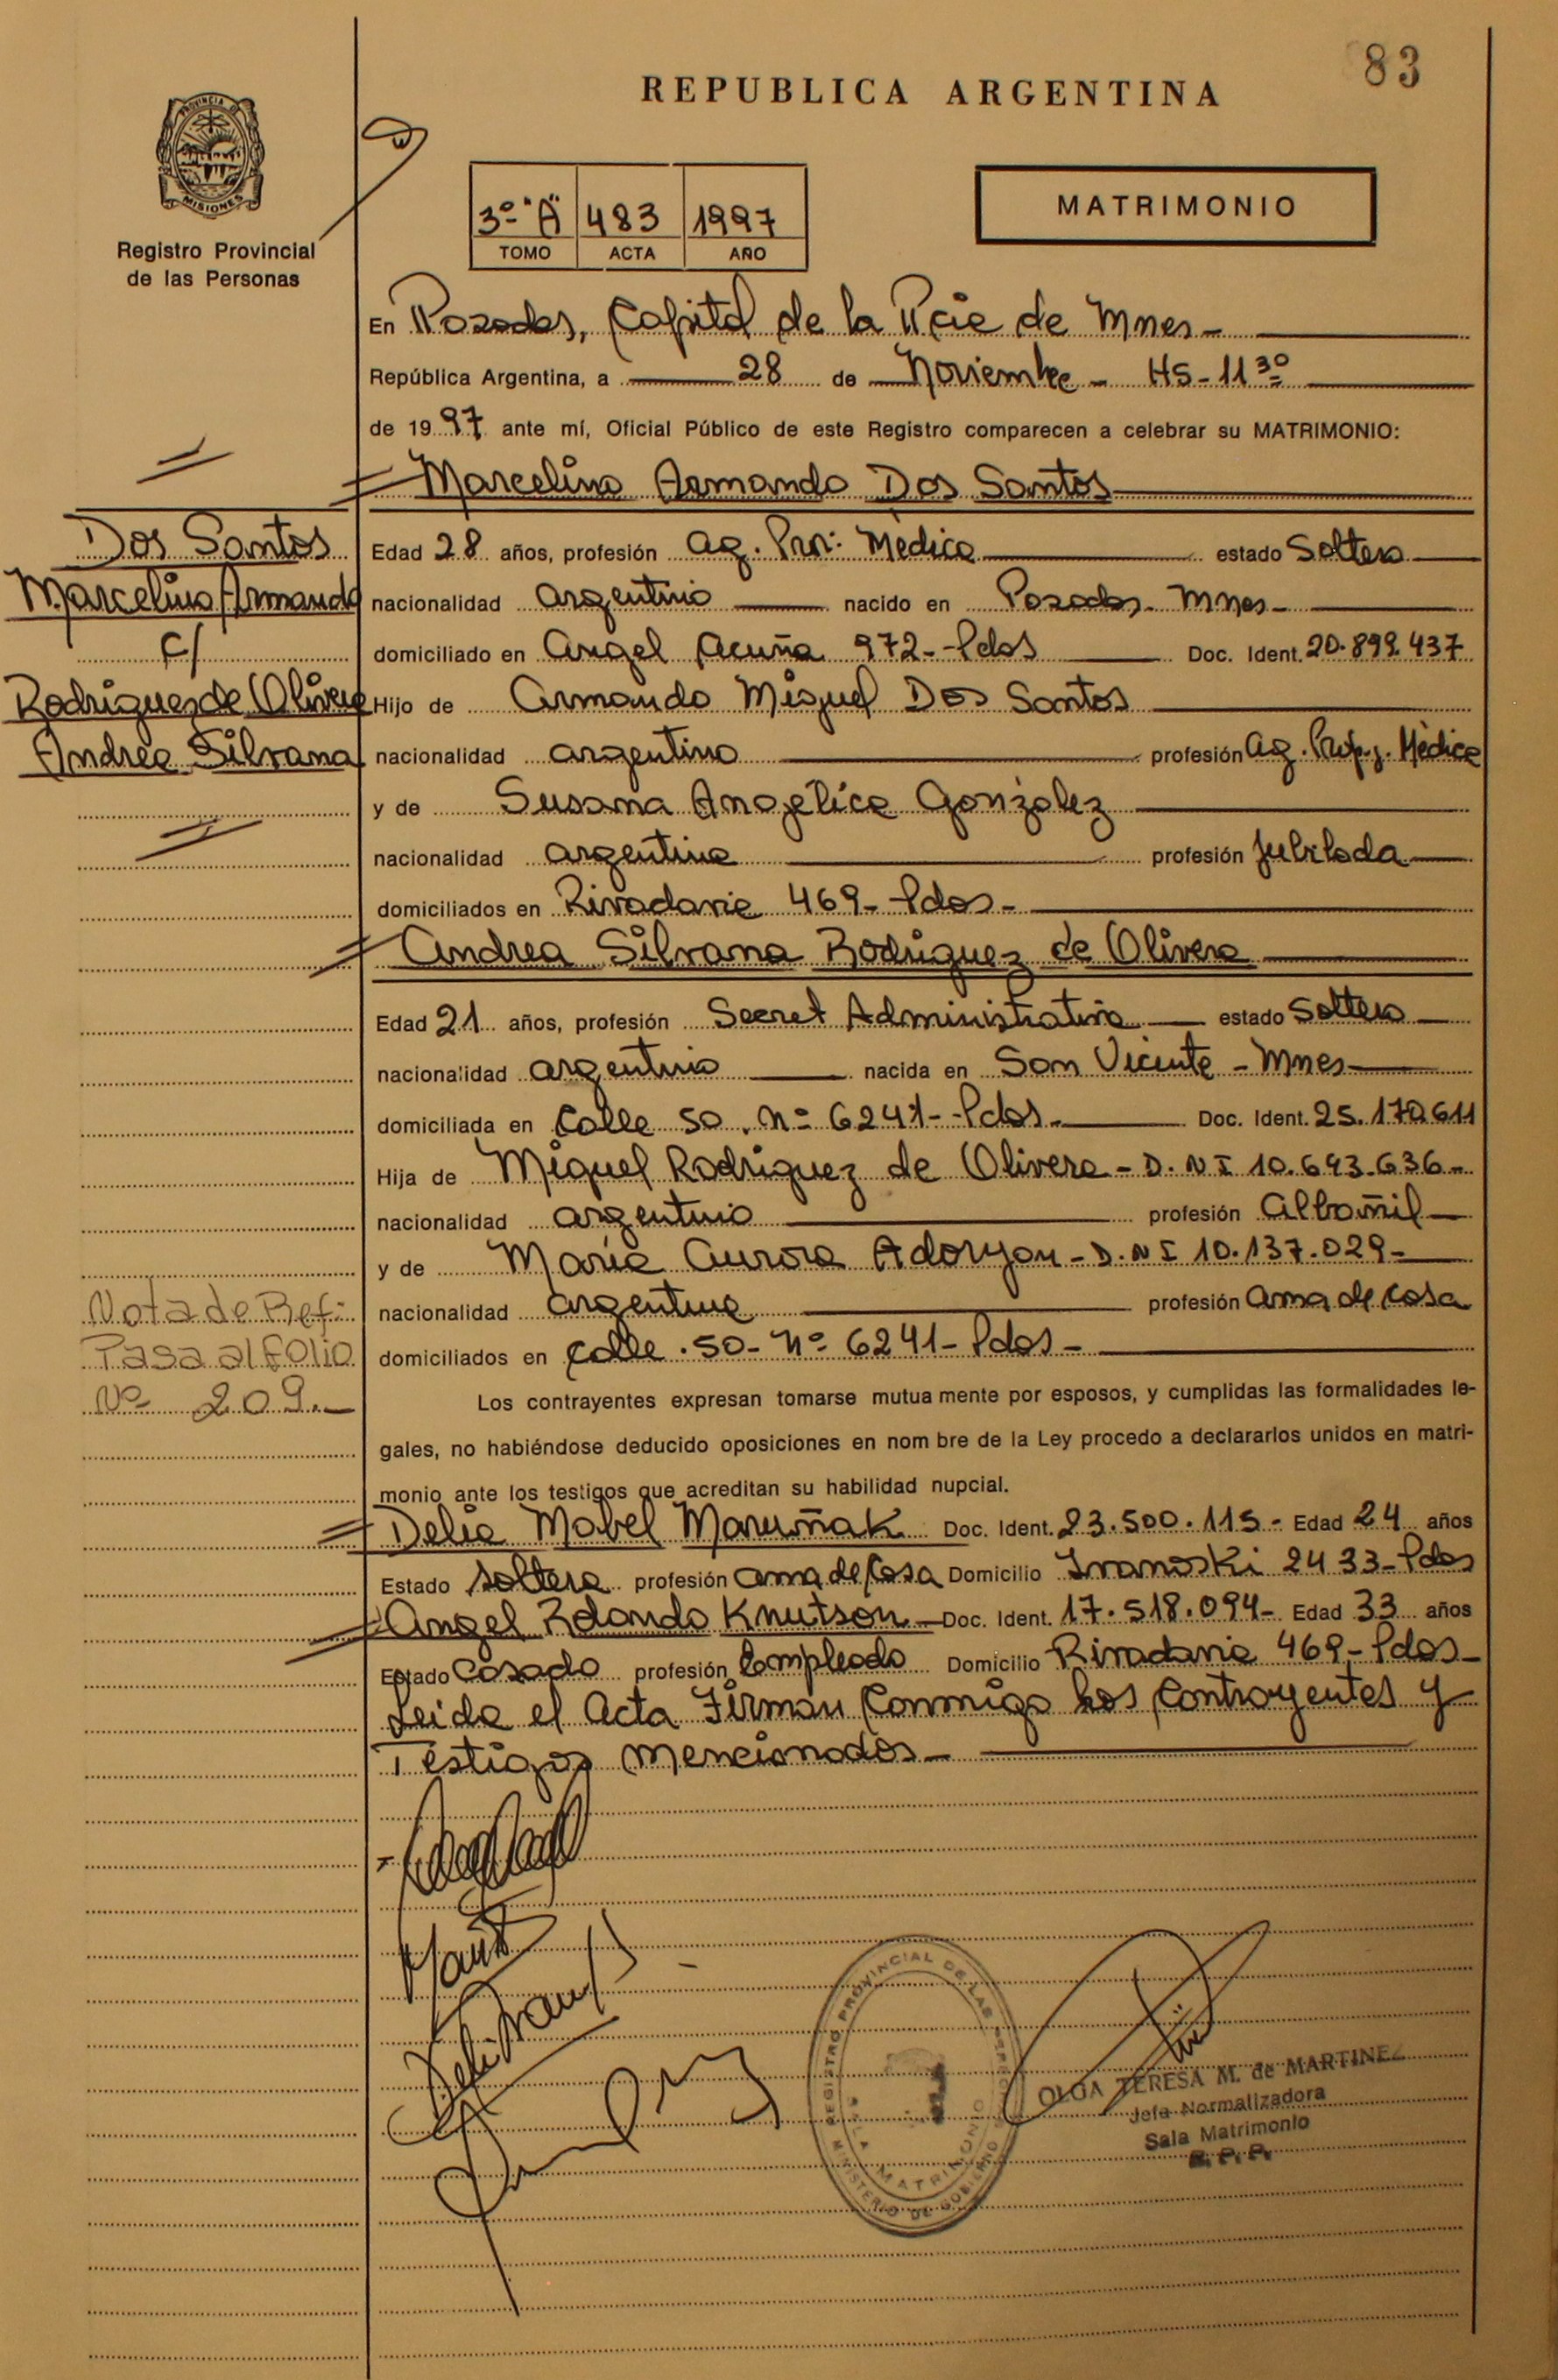 83
REPUBLICA ARGENTINA
PROVINCIA DE
MISIONES
Registro Provincial
de las Personas
3º "A" 483 1997
TOMO ACTA AÑO
MATRIMONIO
En Posadas, Capital de la Pcia de Mnes-
República Argentina, a 28 de Noviembre - HS-11 30
de 1997 ante mí, Oficial Público de este Registro comparecen a celebrar su MATRIMONIO:
Marcelino Armando Dos Santos
Edad 28 años, profesión Ag. Pro: Médica estado Soltero
nacionalidad argentino nacido en Posadas- Mnes-
domiciliado en Angel Acuña 972- Pdas Doc. Ident. 20.899.437
Hijo de Armando Miguel Dos Santos
nacionalidad argentino profesión Ag. Prop. Médica
y de Susana Angélica González
nacionalidad argentina profesión Jubilada
domiciliados en Rivadavia 469- Pdas-
Andrea Silvana Rodríguez de Olivera
Edad 21 años, profesión Secret Administrativa estado Soltera
nacionalidad argentina nacida en San Vicente - Mnes
domiciliada en Calle 50. Nº 6241- Pdas. Doc. Ident. 25.170.611
Hija de Miguel Rodríguez de Olivera - D.N I 10.643.636-
nacionalidad argentino profesión Albañil
y de María Aurora Adoryan - D.N I 10.137.029-
nacionalidad argentina profesión ama de casa
domiciliados en Calle .50- Nº 6241- Pdas-
Los contrayentes expresan tomarse mutua mente por esposos, y cumplidas las formalidades le-
gales, no habiéndose deducido oposiciones en nom bre de la Ley procedo a declararlos unidos en matri-
monio ante los testigos que acreditan su habilidad nupcial.
Delia Mabel Maruñak Doc. Ident. 23.500.115- Edad 24 años
Estado soltera profesión ama de Casa Domicilio Ivanoski 2433- Pdas
Angel Rolando Knutson Doc. Ident. 17.518.094- Edad 33 años
Estado Casado profesión Empleado Domicilio Rivadavia 469- Pdas-
Leida el Acta Firman Conmigo los Contrayentes y
Testigos Mencionados-
Dos Santos
Marcelino Armando
c/
Rodríguez de Olivera
Andrea Silvana
Nota de Ref:
Pasa al folio
Nº 209.-
REGISTRO PROVINCIAL DE LAS PERSONAS
SALA MATRIMONIO
MINISTERIO DE GOBIERNO
OLGA TERESA M. de MARTINEZ
Jefa Normalizadora
Sala Matrimonio
R. P. P.